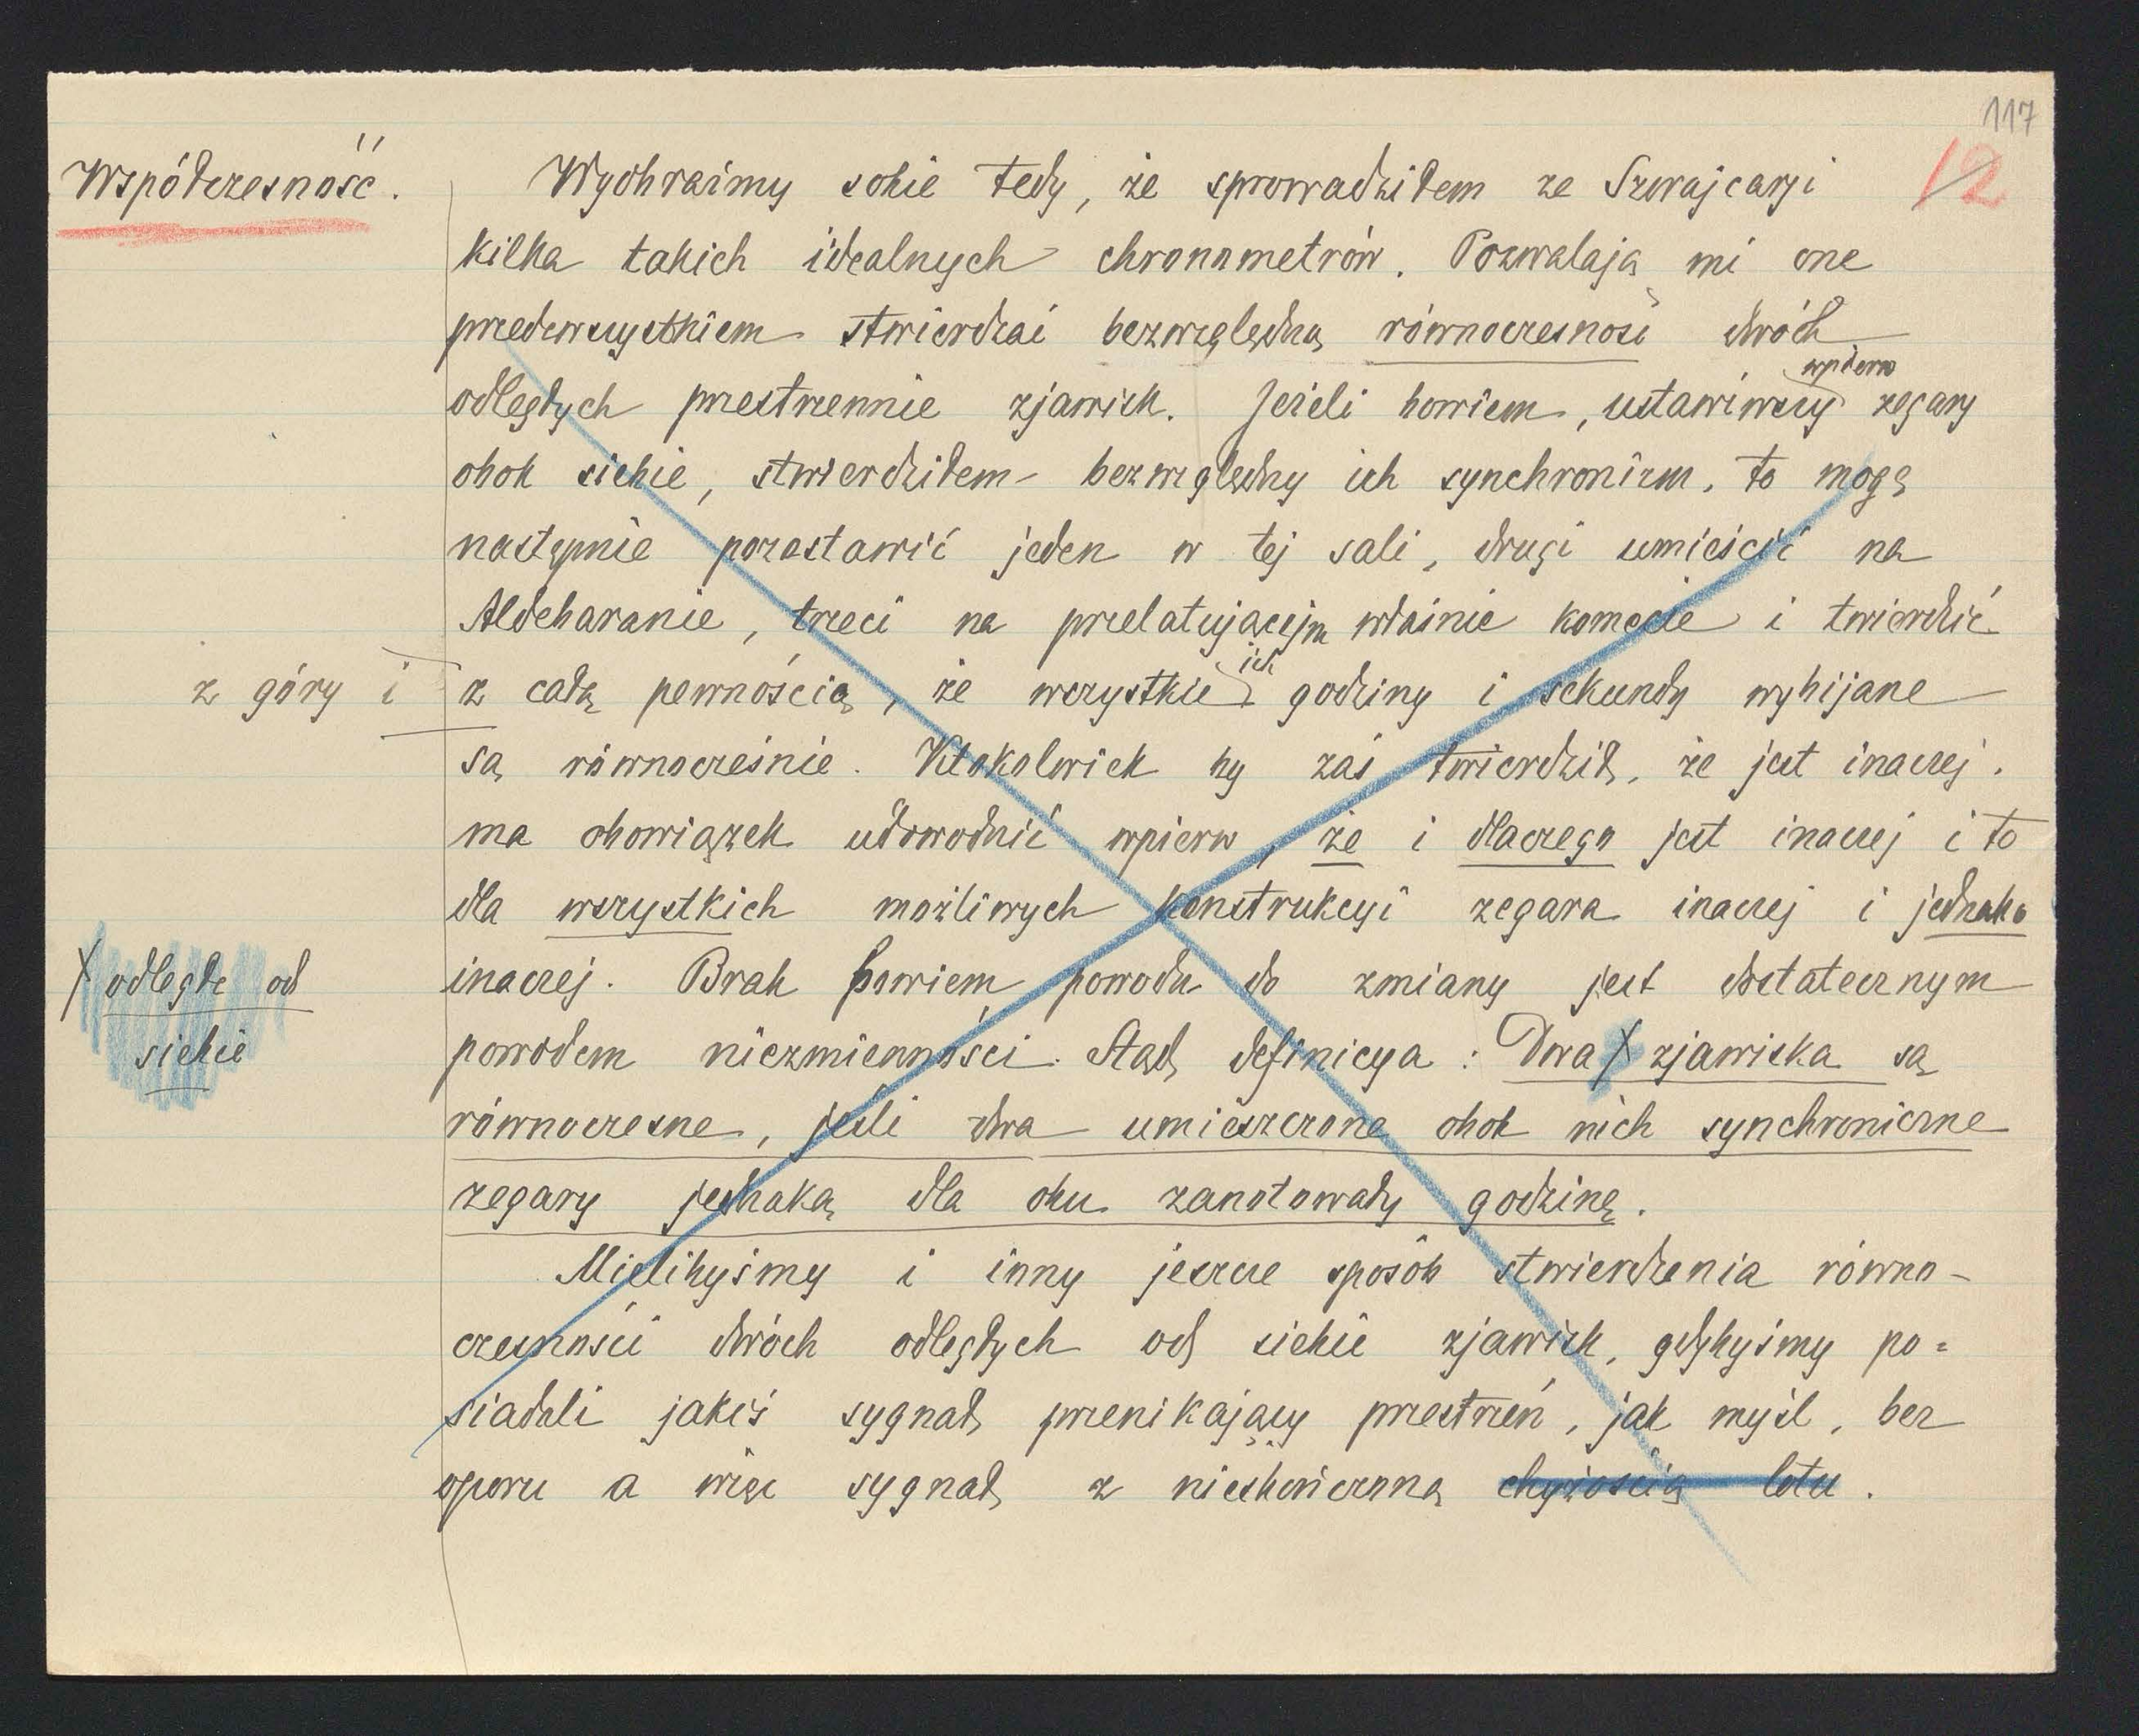 117
12
Współczesność.
Wyobraźmy sobie tedy, że sprowadziłem ze Szwajcarji
kilka takich idealnych chronometrów. Pozwalają mi one
przedewszystkiem stwierdzać bezwzględną równoczesność dwóch
odległych przestrzennie zjawisk. Jeżeli bowiem, ustawiwszy wpierw zegary
obok siebie, stwierdziłem bezwzględny ich synchronizm, to mogę
następnie pozostawić jeden w tej sali, drugi umieścić na
Aldebaranie, trzeci na przelatującejm właśnie komecie i twierdzić
z góry i z całą pewnością, że wszystkie ich godziny i sekundy wybijane
są równocześnie. Ktokolwiek by zaś twierdził, że jest inaczej.
ma obowiązek udowodnić wpierw, że i dlaczego jest inaczej i to
dla wszystkich możliwych konstrukcyi zegara inaczej i jednako
inaczej. Brak bowiem powodu do zmiany jest dostatecznym
powodem niezmienności. Stąd definicya: Dwa X zjawiska są
X odległe od
siebie
równoczesne, jeśli dwa umieszczone obok nich synchroniczne
zegary jednaką dla obu zanotowały godzinę.
Mielibyśmy i inny jeszcze sposób stwierdzenia równo-
czesności dwóch odległych od siebie zjawisk, gdybyśmy po=
siadali jakiś sygnał przenikający przestrzeń, jak myśl, bez
oporu a więc sygnał z nieskończoną chyżością lotu.